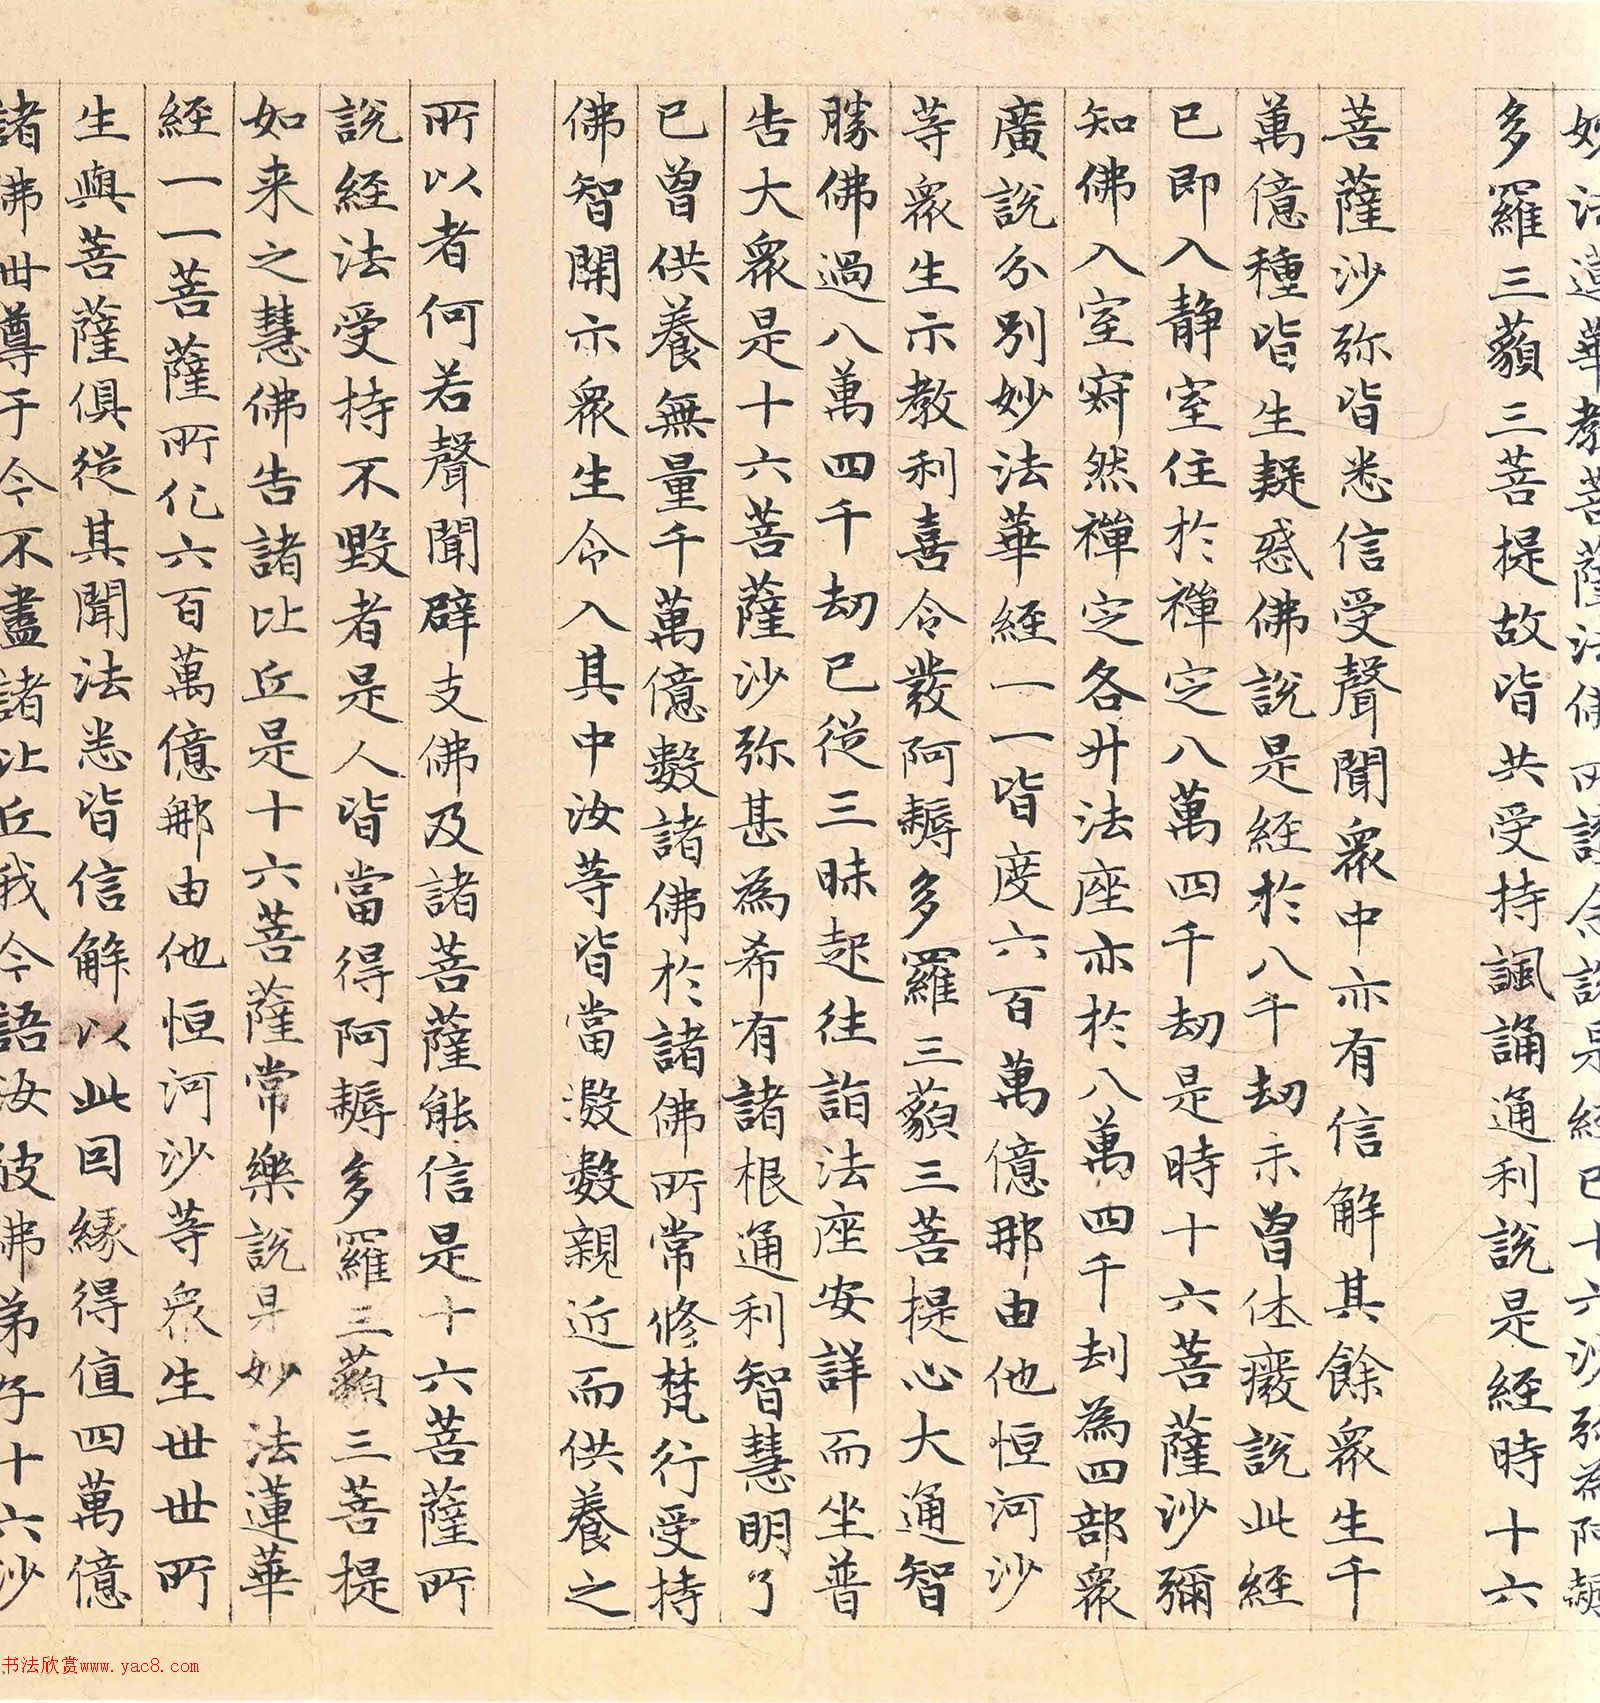 妙法蓮華教菩薩法佛所護念說是經已十六沙弥為阿耨
多羅三藐三菩提故皆共受持諷誦通利說是經時十六
菩薩沙弥皆悉信受聲聞眾中亦有信解其餘眾生千
萬億種皆生疑惑佛說是經於八千劫未曾休癈說此經
已即入静室住於禪定八萬四千劫是時十六菩薩沙彌
知佛入室寂然禪定各升法座亦於八萬四千劫為四部眾
廣說分別妙法華經一一皆度六百萬億那由他恒河沙
等眾生示教利喜令發阿耨多羅三藐三菩提心大通智
勝佛過八萬四千劫已從三昧起往詣法座安詳而坐普
告大眾是十六菩薩沙弥甚為希有諸根通利智慧明了
已曾供養無量千萬億數諸佛於諸佛所常修梵行受持
佛智開示眾生令入其中汝等皆當數數親近而供養之
所以者何若聲聞辟支佛及諸菩薩能信是十六菩薩所
說經法受持不毀者是人皆當得阿耨多羅三藐三菩提
如来之慧佛告諸比丘是十六菩薩常樂說是妙法蓮華
經一一菩薩所化六百萬億那由他恒河沙等眾生世世所
生與菩薩俱從其聞法悉皆信解以此因緣得值四萬億
諸佛世尊于今不盡諸比丘我今語汝彼佛弟子十六沙
书法欣赏www.yac8.com